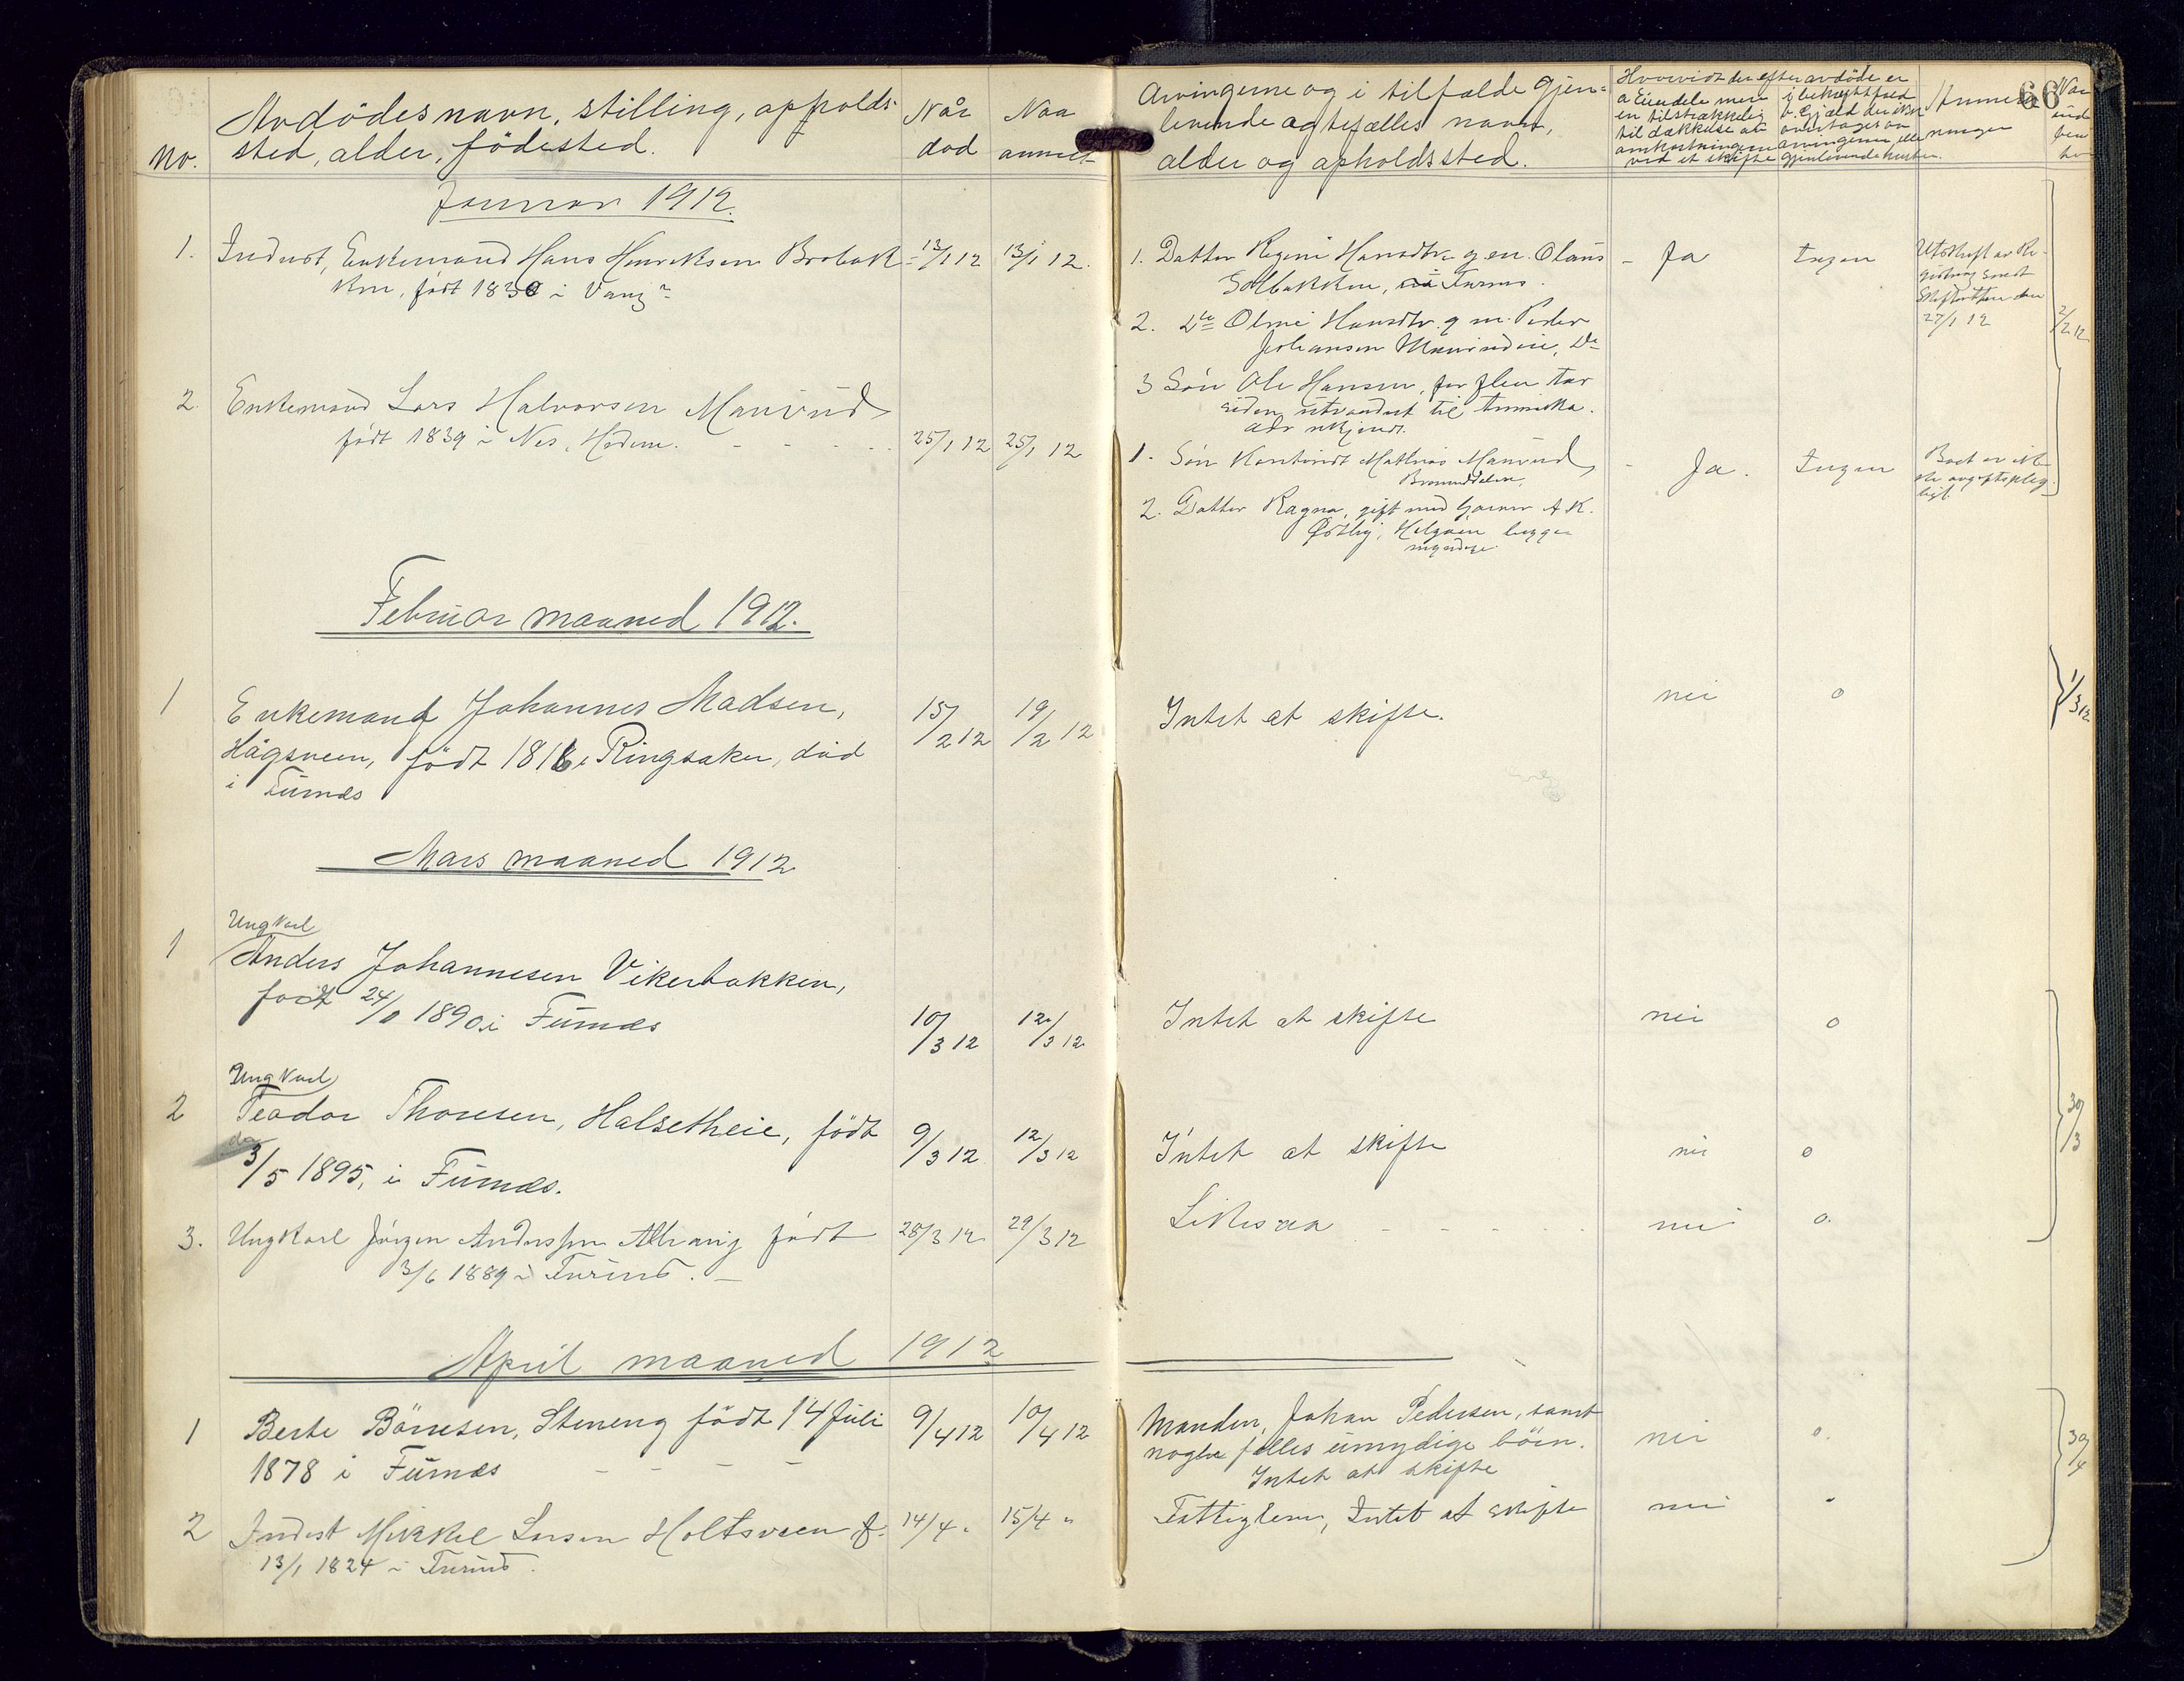 No.
Avdödes navn, stilling, opholds-
sted, alder, födested.
Når
död
Naa
anmelt
Januar 1912.
1. Inderst, Enkemand Hans Henriksen Brobak-
ken, født 1830 i Vang
13/1 12
13/1 12.
2. Enkemand Lars Halvorsen Maurud
født 1839 i Nes, Hedem.
25/1 12
25/1 12
Februar maaned 1912.
1 Enkemand Johannes Madsen,
Hågsveen, født 1816 i Ringsaker, död
i Furnes
15/2 12
19/2 12
Mars maaned 1912
Ungkarl
1 Anders Johannesen Vikerbakken,
født 24/ 1890 i Furnes
10/3 12
12/3 12
Ungkarl
2 Teodor Thoresen, Halsetheie, födt
3/5 1895, i Furnes.
9/3 12
12/3 12
3. Ungkarl Jörgen Anderssen födt
3/6 1889 i Furnes.
28/3 12
29/3 12
April maaned 1912
1 Berte Börresen, Steneng födt 14 Juli
1878 i Furnes
9/4 12
10/4 12
2 Inderst Mikkel Larsen Holtsveen f.
13/1 1824 i Furnes.
14/4 "
15/4 "
66
Arvingerne og i tilfælde gjen-
levende ægtefælles navn,
alder og opholdssted.
Hvorvidt der efter avdöde er
a Eiendele mere
en tilstrækkelig
til dækkelse av
omkostningerne
ved et skifte
b. Gjæld der ikke
overtages av
arvingerne eller
gjenlevende
Anmerk
ninger
1. Datter Regine Hansdtr. g. m. Olaus
Solbakken, Furnes.
Ja
Ingen
Utskrift av Re-
gistrering sendt
Skifteretten den
27/1 12
2/2 12
2. Do Oline Hansdtr. g. m. Peder
Johansen
3 Søn Ole Hansen, for flere aar
siden utvandret til Amerika.
adr ukjendt.
1. Søn Mathias Maurud,
Brumunddalen,
Ja.
Ingen
Boet er ikke
avgiftsplig-
tigt.
2. Datter Ragna, gift med A K.
Østby, Helgøen begge
myndige
Intet at skifte.
nei
o
1/3 12
Intet at skifte
nei
o
Intet at skifte
nei
o
30/3
Likesaa
nei
o.
Manden, Johan Pedersen, samt
nogle felles umydige börn.
Intet at skifte
nei
o.
30/4
Fattiglem, Intet at skifte
nei
"